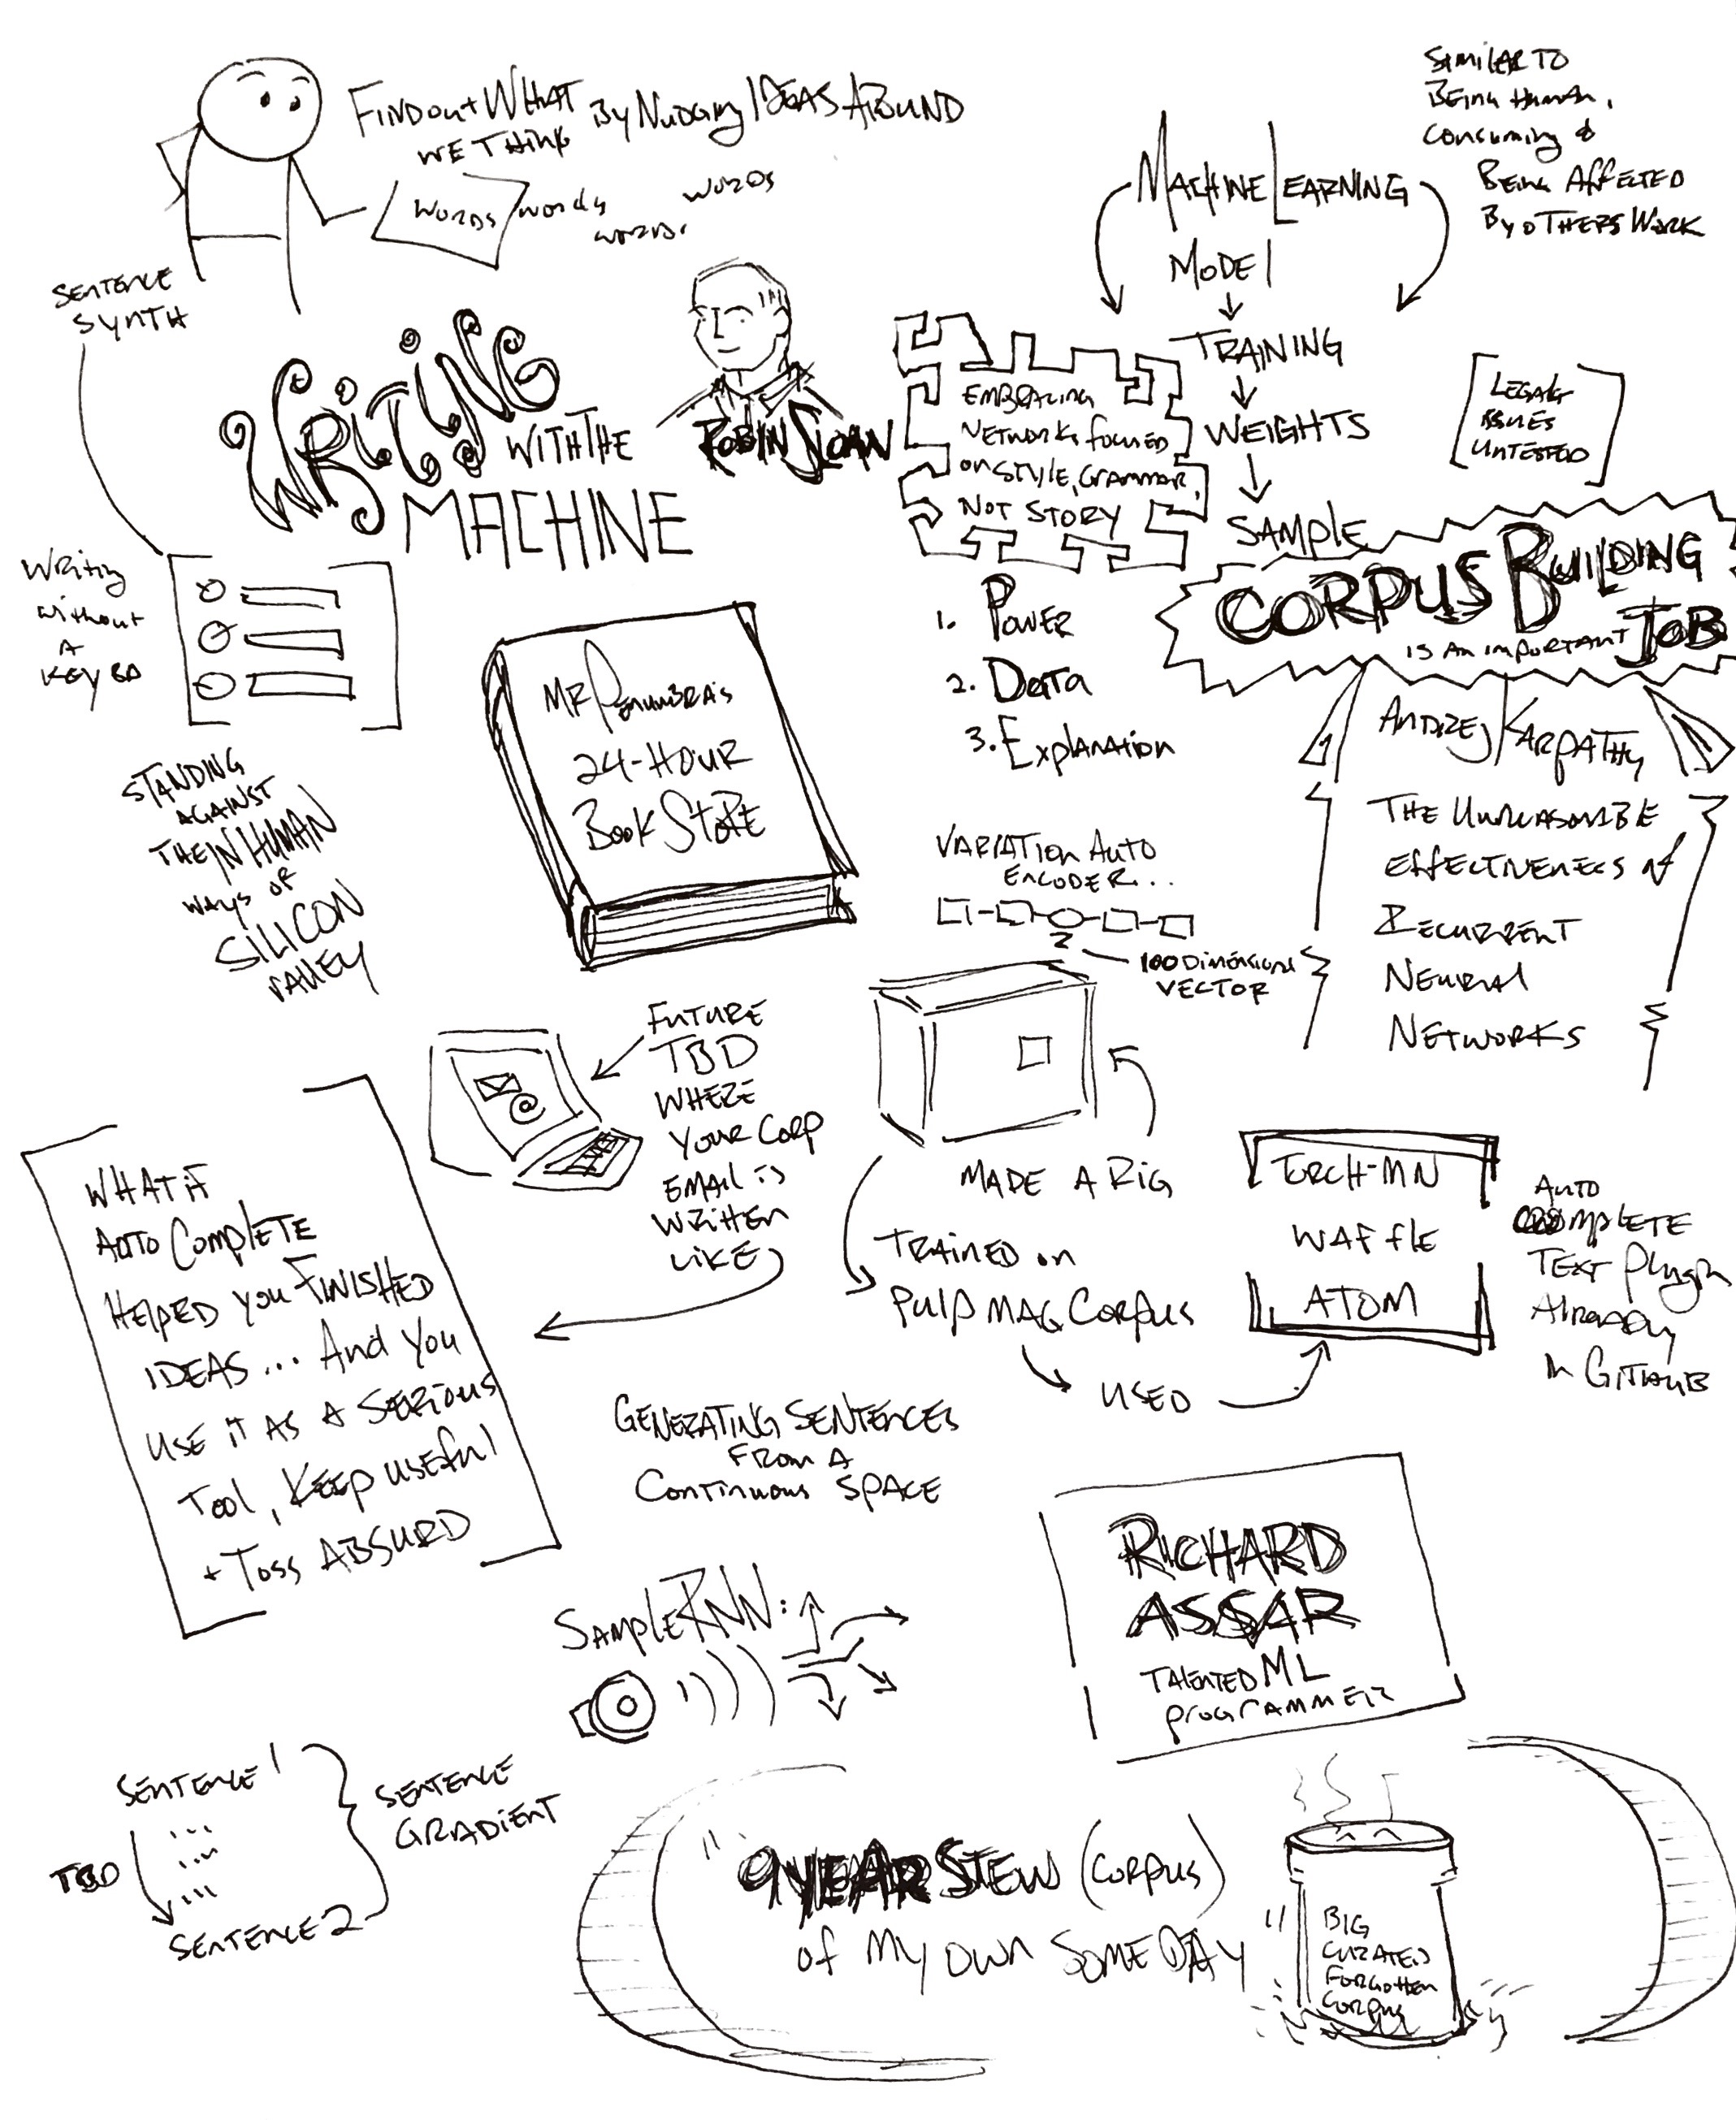 FIND OUT WHAT
WE THINK
BY Nudging IDEAS AROUND
WORDS
words
words
WORDS
SENTENCE
SYNTH
WRITING
WITH THE
MACHINE
ROBIN SLOAN
MACHINE LEARNING
MODEL
TRAINING
WEIGHTS
SAMPLE
SIMILAR TO
BEING HUMAN,
CONSUMING &
BEING AFFECTED
BY OTHERS WORK
EMBRACING
NETWORKS FOCUSED
ON STYLE, GRAMMAR,
NOT STORY
LEGAL
ISSUES
UNTESTED
CORPUS BUILDING
IS AN IMPORTANT JOB
Writing
without
A
KEY BD
STANDING
AGAINST
THE INHUMAN
WAYS OF
SILICON
VALLEY
MR PENUMBRA'S
24-HOUR
BOOK STORE
1. POWER
2. Data
3. Explanation
ANDREJ KARPATHY
THE UNREASONABLE
EFFECTIVENESS of
RECURRENT
NEURAL
NETWORKS
VARIATION AUTO
ENCODER...
Z
100 DIMENSIONAL
VECTOR
FUTURE
TBD
WHERE
YOUR CORP
EMAIL is
WRITTEN
LIKE
@
WHAT if
AUTO COMPLETE
HELPED YOU FINISHED
IDEAS... And You
USE iT AS A SERIOUS
TOOL, KEEP USEFUL
+ TOSS ABSURD
MADE A RIG
TRAINED on
PULP MAG CORPUS
USED
TORCH-RNN
WAFFLE
ATOM
AUTO
COMPLETE
TEXT Plugin
Already
In GITHUB
GENERATING SENTENCES
FROM A
CONTINUOUS SPACE
SAMPLE RNN:
RICHARD
ASSAR
TALENTED ML
PROGRAMMER
SENTENCE 1
...
...
...
SENTENCE 2
TBD
SENTENCE
GRADIENT
"9 YEAR STEW (CORPUS)
of MY OWN SOMEDAY"
BIG
CURATED
FORGOTTEN
CORPUS